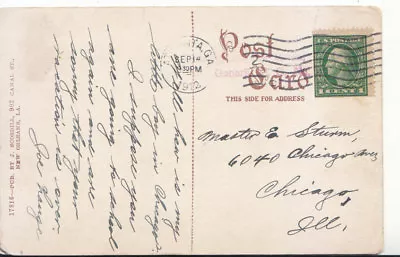 Well here is my
today by in Chicago.
I suppose you
are going to school
again and are
sorry that your
vacation is over.
Joe
17816 - PUB. BY J. SCORDILL, 902 CANAL ST.,
NEW ORLEANS, LA.
SEP 14
30PM
1912
Post
Card
THIS SIDE FOR ADDRESS
U.S. POSTAGE
1 CENT 1
Master E. Sturm
6040 Chicago Ave
Chicago,
Ill.